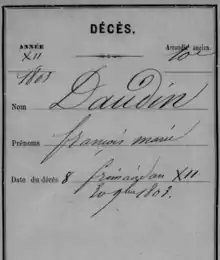 DÉCÈS.
ANNÉE Arondt ancien.
XII 10e
1803
Nom Daudin
Prénoms françois marie
Date du décès 8 frimaire an XII
30 9bre 1803.